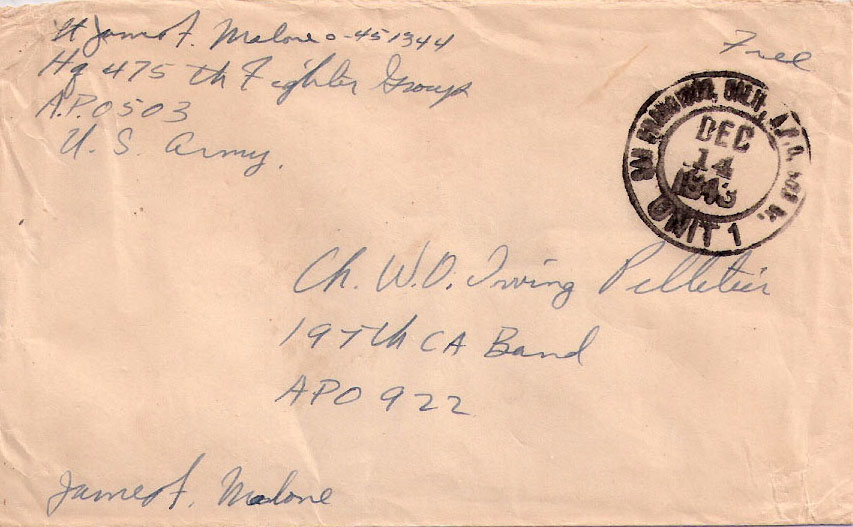 Lt James F. Malone O-451344
Hq 475th Fighter Group
A.P.O 503
U. S. Army.
Free
SAN FRANCISCO, CALIF., A.P.O.
DEC
14
1943
UNIT 1
Ch. W.O. Irving Pelletier
197th CA Band
APO 922
James F. Malone